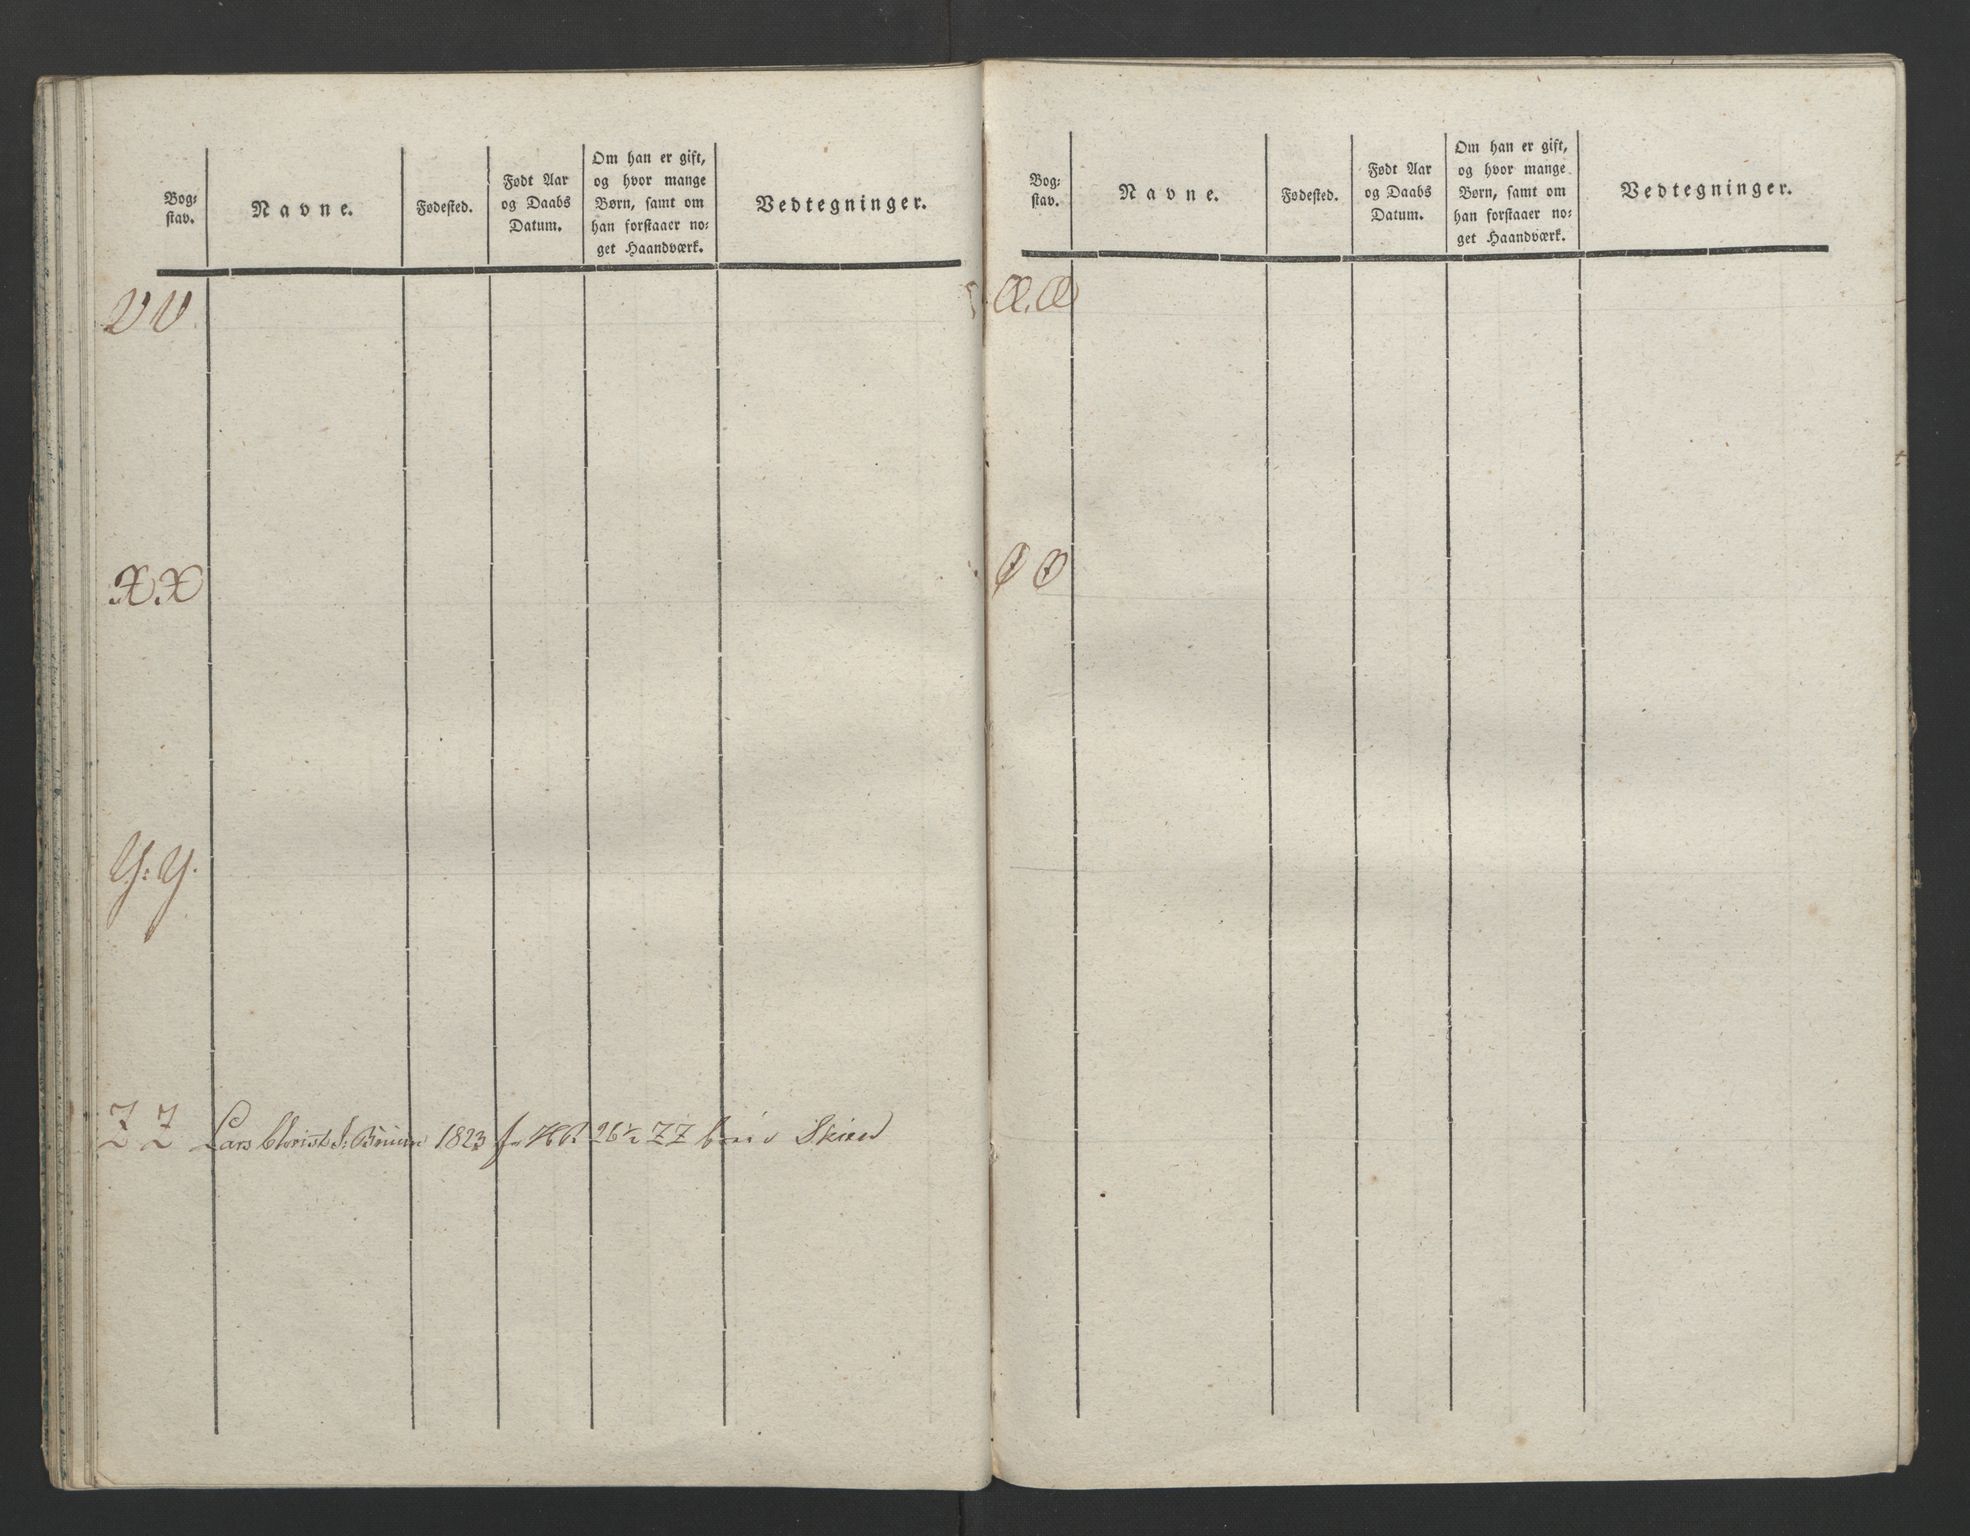 Bog=
stav.
Navne.
Fødested.
Født Aar
og Daabs
Datum.
Om han er gift,
og hvor mange
Børn, samt om
han forstaaer no=
get Haandværk.
Vedtegninger.
V V
X. X
Y: Y.
Z Z Lars Christ J: 1823 26½ ZZ
Bog=
stav.
Navne.
Fødested.
Født Aar
og Daabs
Datum.
Om han er gift,
og hvor mange
Børn, samt om
han forstaaer no=
get Haandværk.
Vedtegninger.
Æ. Æ
Ø Ø